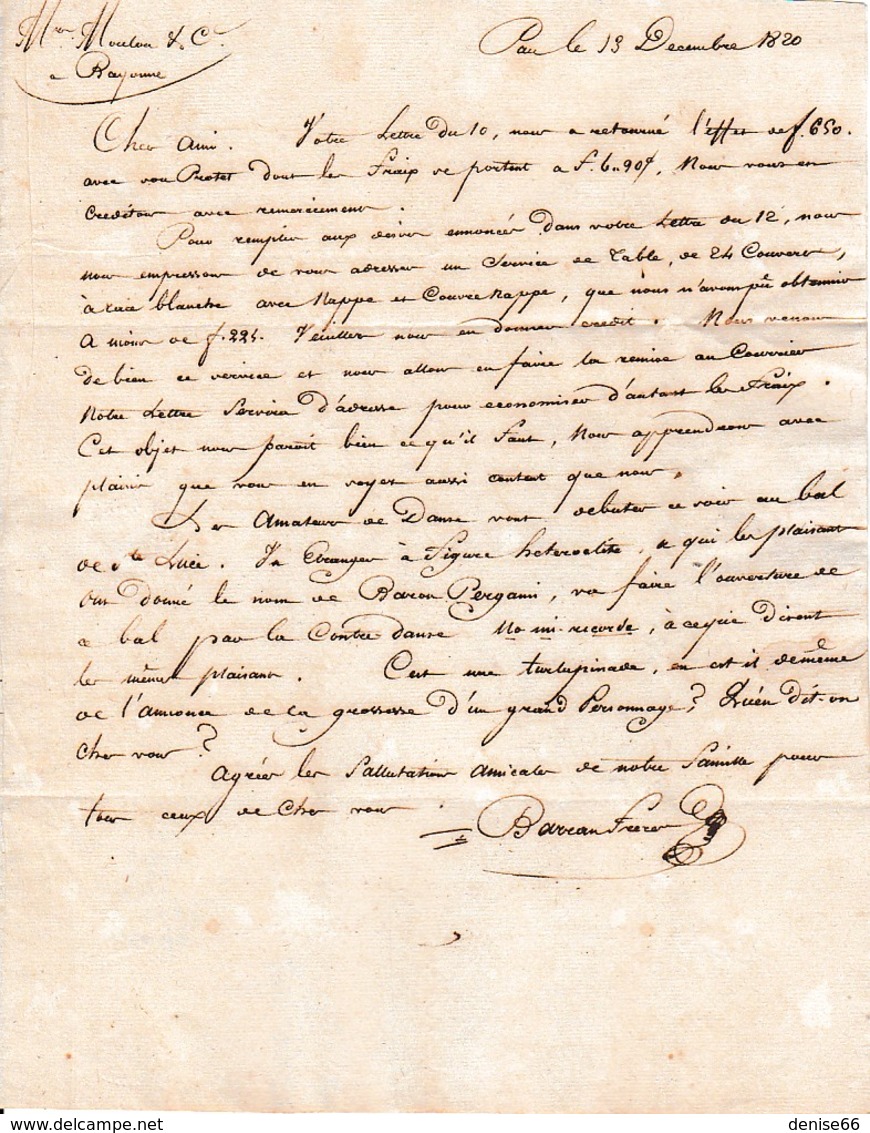 Mrs. Moulon & Cie.
a Bayonne
Pau le 13 Decembre 1820
Cher Ami. Votre Lettre du 10, nous a retourné l'effet de f. 650.
avec son Protet dont les Fraix se portent a f. 6"90c, Nous vous en
creditons avec remerciement.
Pour remplir aux desirs ennoncés dans votre Lettre du 12, nous
nous empressons de vous adresser un Service de Table, de 24 Couverts,
à raie blanche avec Nappe et Couvre nappe, que nous n'avons pû obtennir
a moins de f. 225. Veuillez nous en donner credit. Nous venons
de bien ce service et nous allons en faire la remise au Courrier
Notre Lettre Servira d'adresse pour economiser d'autant les Fraix.
Cet objet nous paroit bien ce qu'il faut, Nous apprendrons avec
plaisir que vous en soyez aussi content que nous.
Les Amateurs de Danse vont debuter ce soir au bal
de Ste Lucie. Un Etranger à Figure heteroclite, a qui les plaisants
ont donné le nom de Baron Pergami, va faire l'ouverture de
a bal par la Contre danse No mi ricordo, à ceque disent
les mêmes plaisants. C'est une turlupinade, en est il demême
de l'annonce de la grossesse d'un grand Personnage? Qu'en dit-on
chez vous?
Agréez les Sallutations amicales de notre famille pour
tous ceux de chez vous.
Barran Freres
denise66